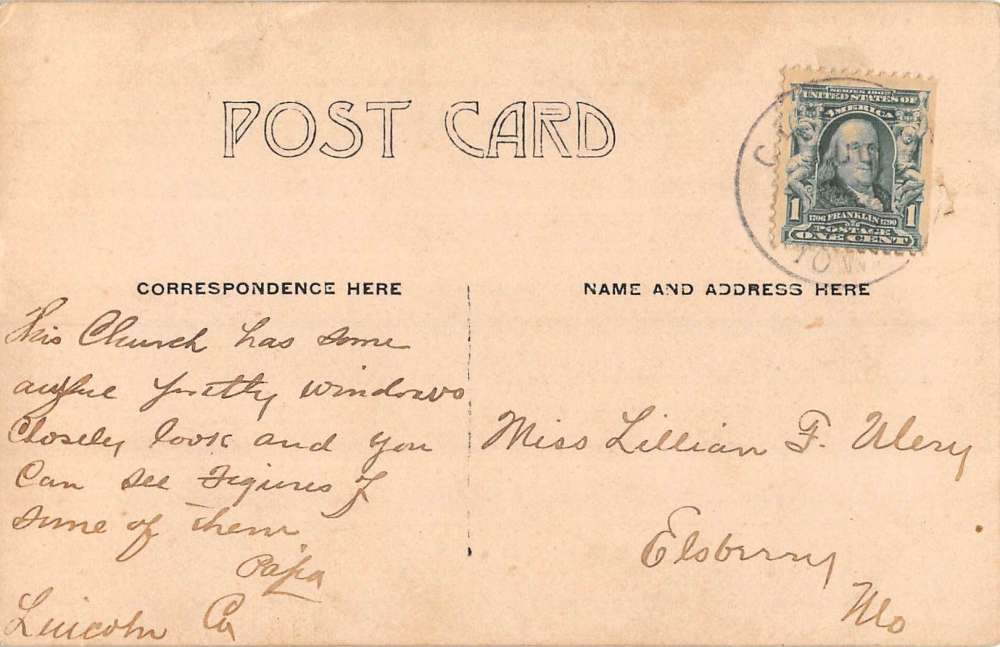 POST CARD
SERIES 1902
UNITED STATES OF
AMERICA
1 1
1706 FRANKLIN 1790
POSTAGE
ONE CENT
IOW
CORRESPONDENCE HERE
This Church has some
awful pretty windows
Closely look and you
Can see Figures of
some of them
Papa
Lincoln Co
NAME AND ADDRESS HERE
Miss Lillian F. Ulery
Elsberry
Mo